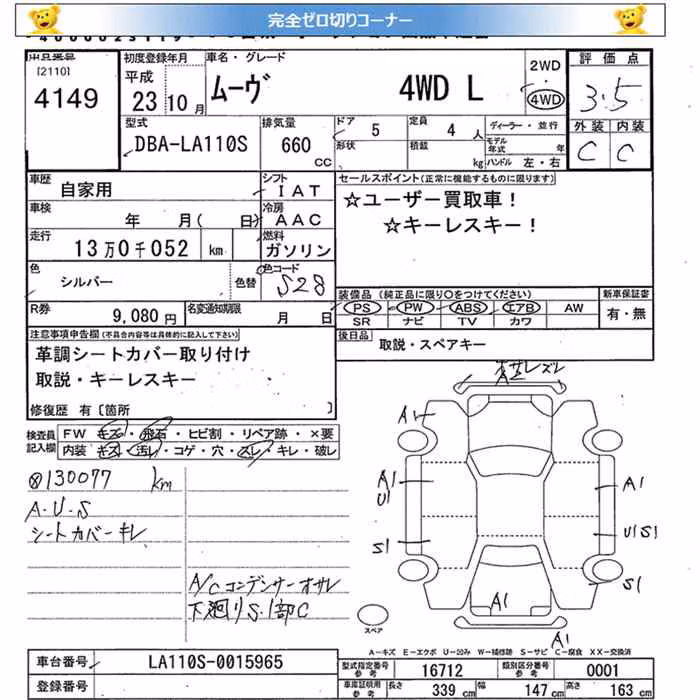 完全ゼロ切りコーナー
[2110]
4149
初度登録年月
平成
23年10月
車名・グレード
ムーヴ 4WD L
2WD
4WD
評価点
3.5
外装 内装
C C
型式
DBA-LA110S
排気量
660 CC
ドア 5
形状
定員 4 人
積載 kg
ディーラー・並行
モデル年式 年
ハンドル 左・右
車歴
自家用
シフト
I A T
車検
年 月( 日)
冷房
A A C
走行
13万0千052 km
燃料
ガソリン
色
シルバー
色替
色コード
S28
R券
9,080円
名変通知期限
月 日
セールスポイント(正常に機能するものに限ります)
☆ユーザー買取車!
☆キーレスキー!
装備品 (純正品に限り○をつけてください)
PS PW ABS エアB AW
SR ナビ TV カワ
新車保証書
有・無
後日品
取説・スペアキー
注意事項申告欄(不具合内容等は具体的に記入して下さい)
革調シートカバー取り付け
取説・キーレスキー
修復歴 有〔箇所 〕
検査員記入欄
FW キズ・飛石・ヒビ割・リペア跡・×要
内装 キズ・汚レ・コゲ・穴・スレ・キレ・破レ
130077 km
A・U・S
シートカバーキレ
A/Cコンデンサーオサレ
下廻りS.1部C
オサレズレ
A2
A1
A1
U1
A1
S1
U1S1
S1
A1
A1
スペア
A-キズ E-エクボ U-凹み W-補修跡 S-サビ C-腐食 XX-交換済
車台番号
LA110S-0015965
登録番号
型式指定番号 参考
16712
類別区分番号 参考
0001
車庫証明用 参考
長さ 339 cm
幅 147 cm
高さ 163 cm